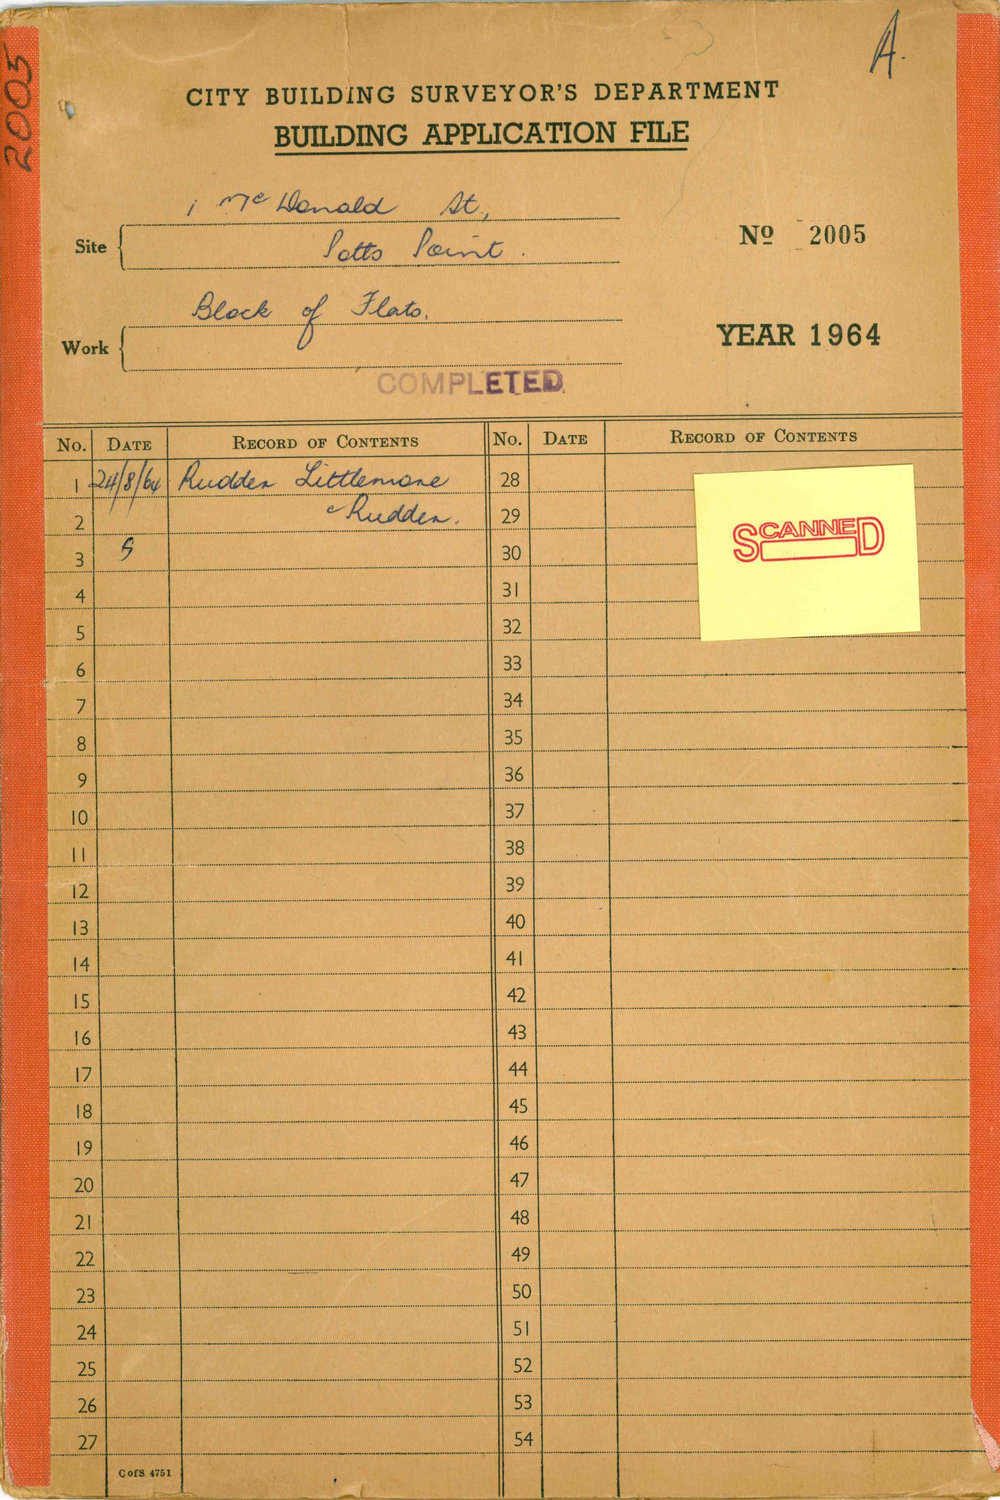 A.
2005
CITY BUILDING SURVEYOR'S DEPARTMENT
BUILDING APPLICATION FILE
1 McDonald St,
Site
Potts Point.
Nº 2005
Block of Flats.
Work
YEAR 1964
COMPLETED
No. DATE RECORD OF CONTENTS No. DATE RECORD OF CONTENTS
1 24/8/64 Rudder Littlemore 28
2 & Rudder. 29
SCANNED
3 S 30
4 31
5 32
6 33
7 34
8 35
9 36
10 37
11 38
12 39
13 40
14 41
15 42
16 43
17 44
18 45
19 46
20 47
21 48
22 49
23 50
24 51
25 52
26 53
27 54
C of S 4751